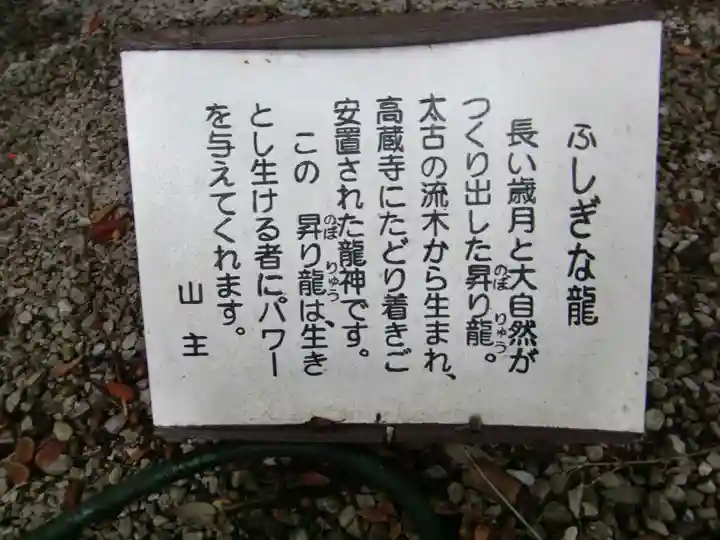 ふしぎな龍
長い歳月と大自然が
つくり出した昇り龍。
のぼ りゅう
太古の流木から生まれ、
高蔵寺にたどり着きご
安置された龍神です。
この 昇り龍は、生き
のぼ りゅう
とし生ける者にパワー
を与えてくれます。
山主